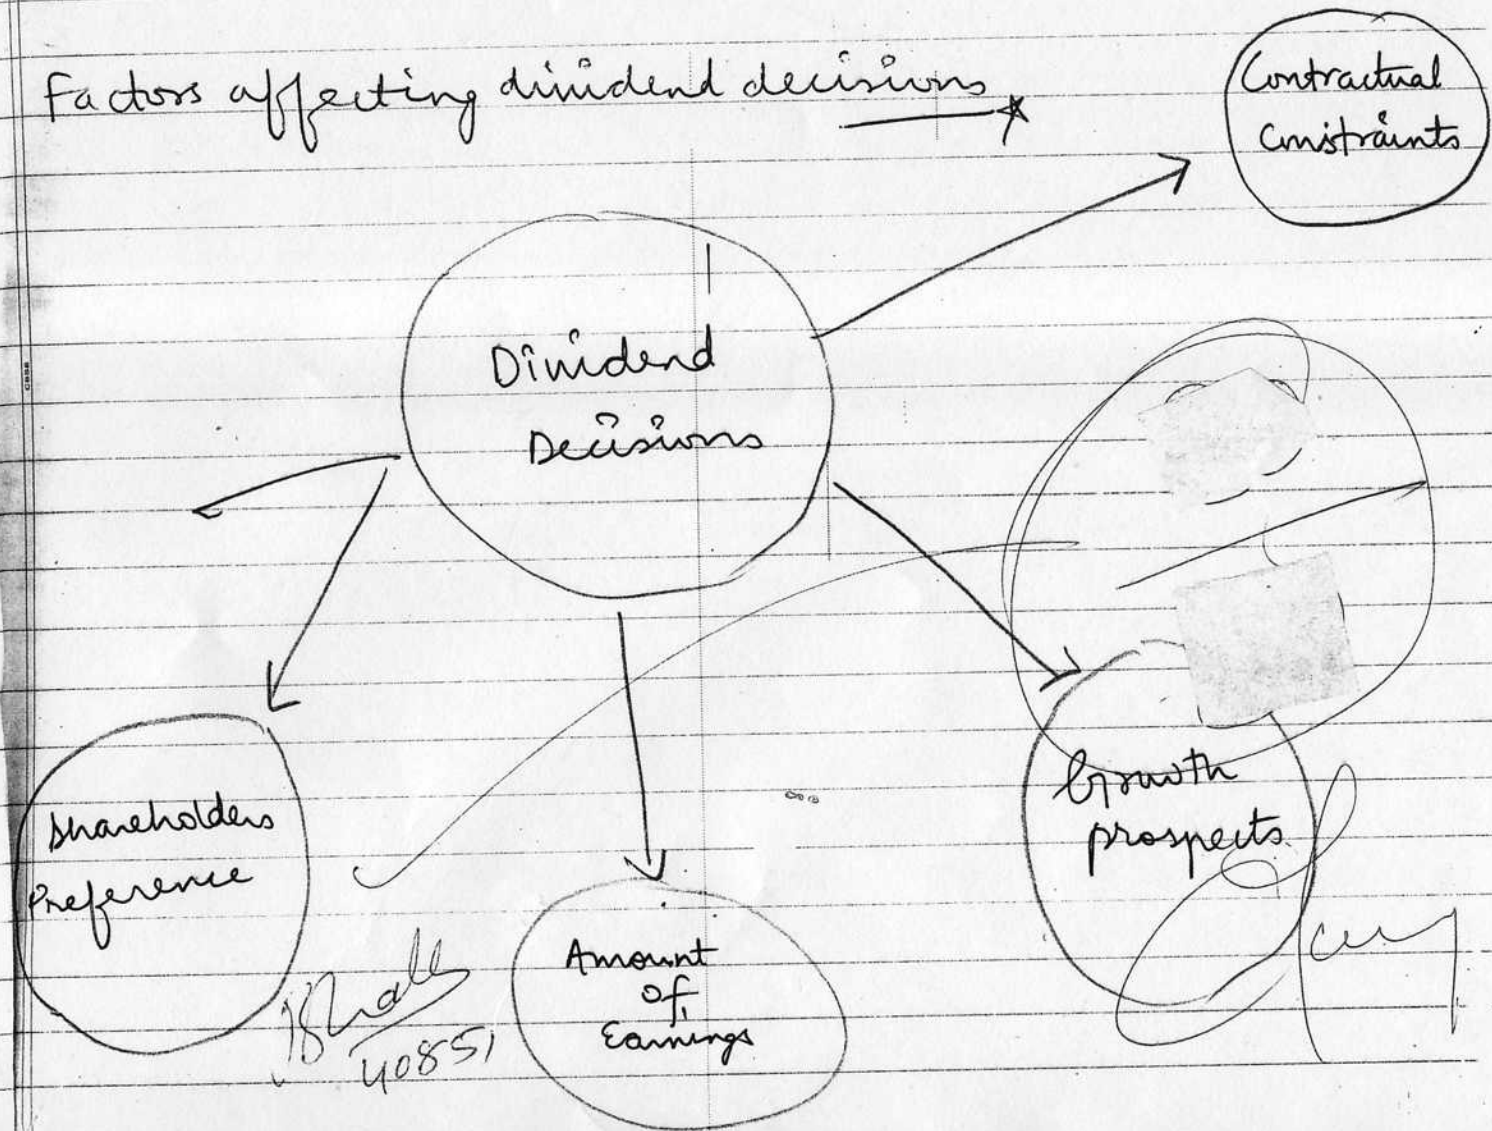 Factors affecting dividend decisions
Contractual
Constraints
Dividend
Decisions
Growth
prospects
Shareholders
Preference
Amount
of
Earnings
40851